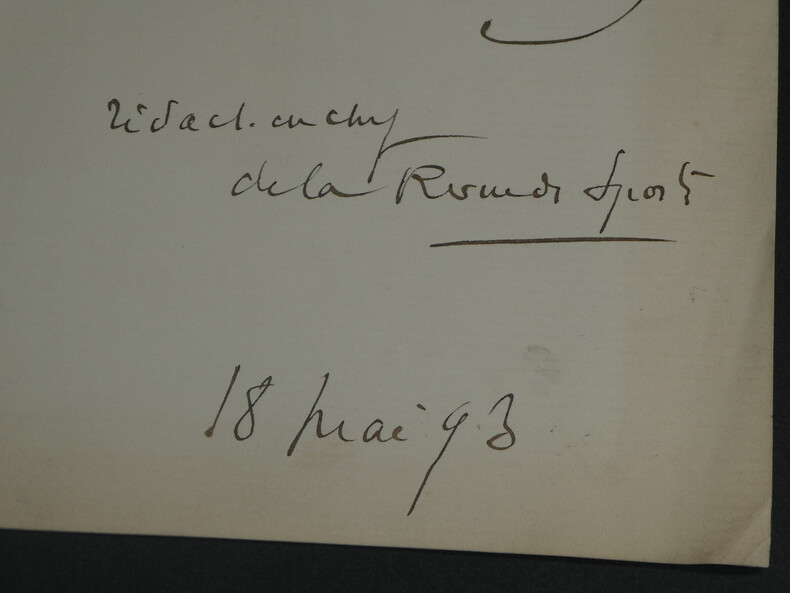 rédact. en chef
de la Revue des Sports
18 mai 93